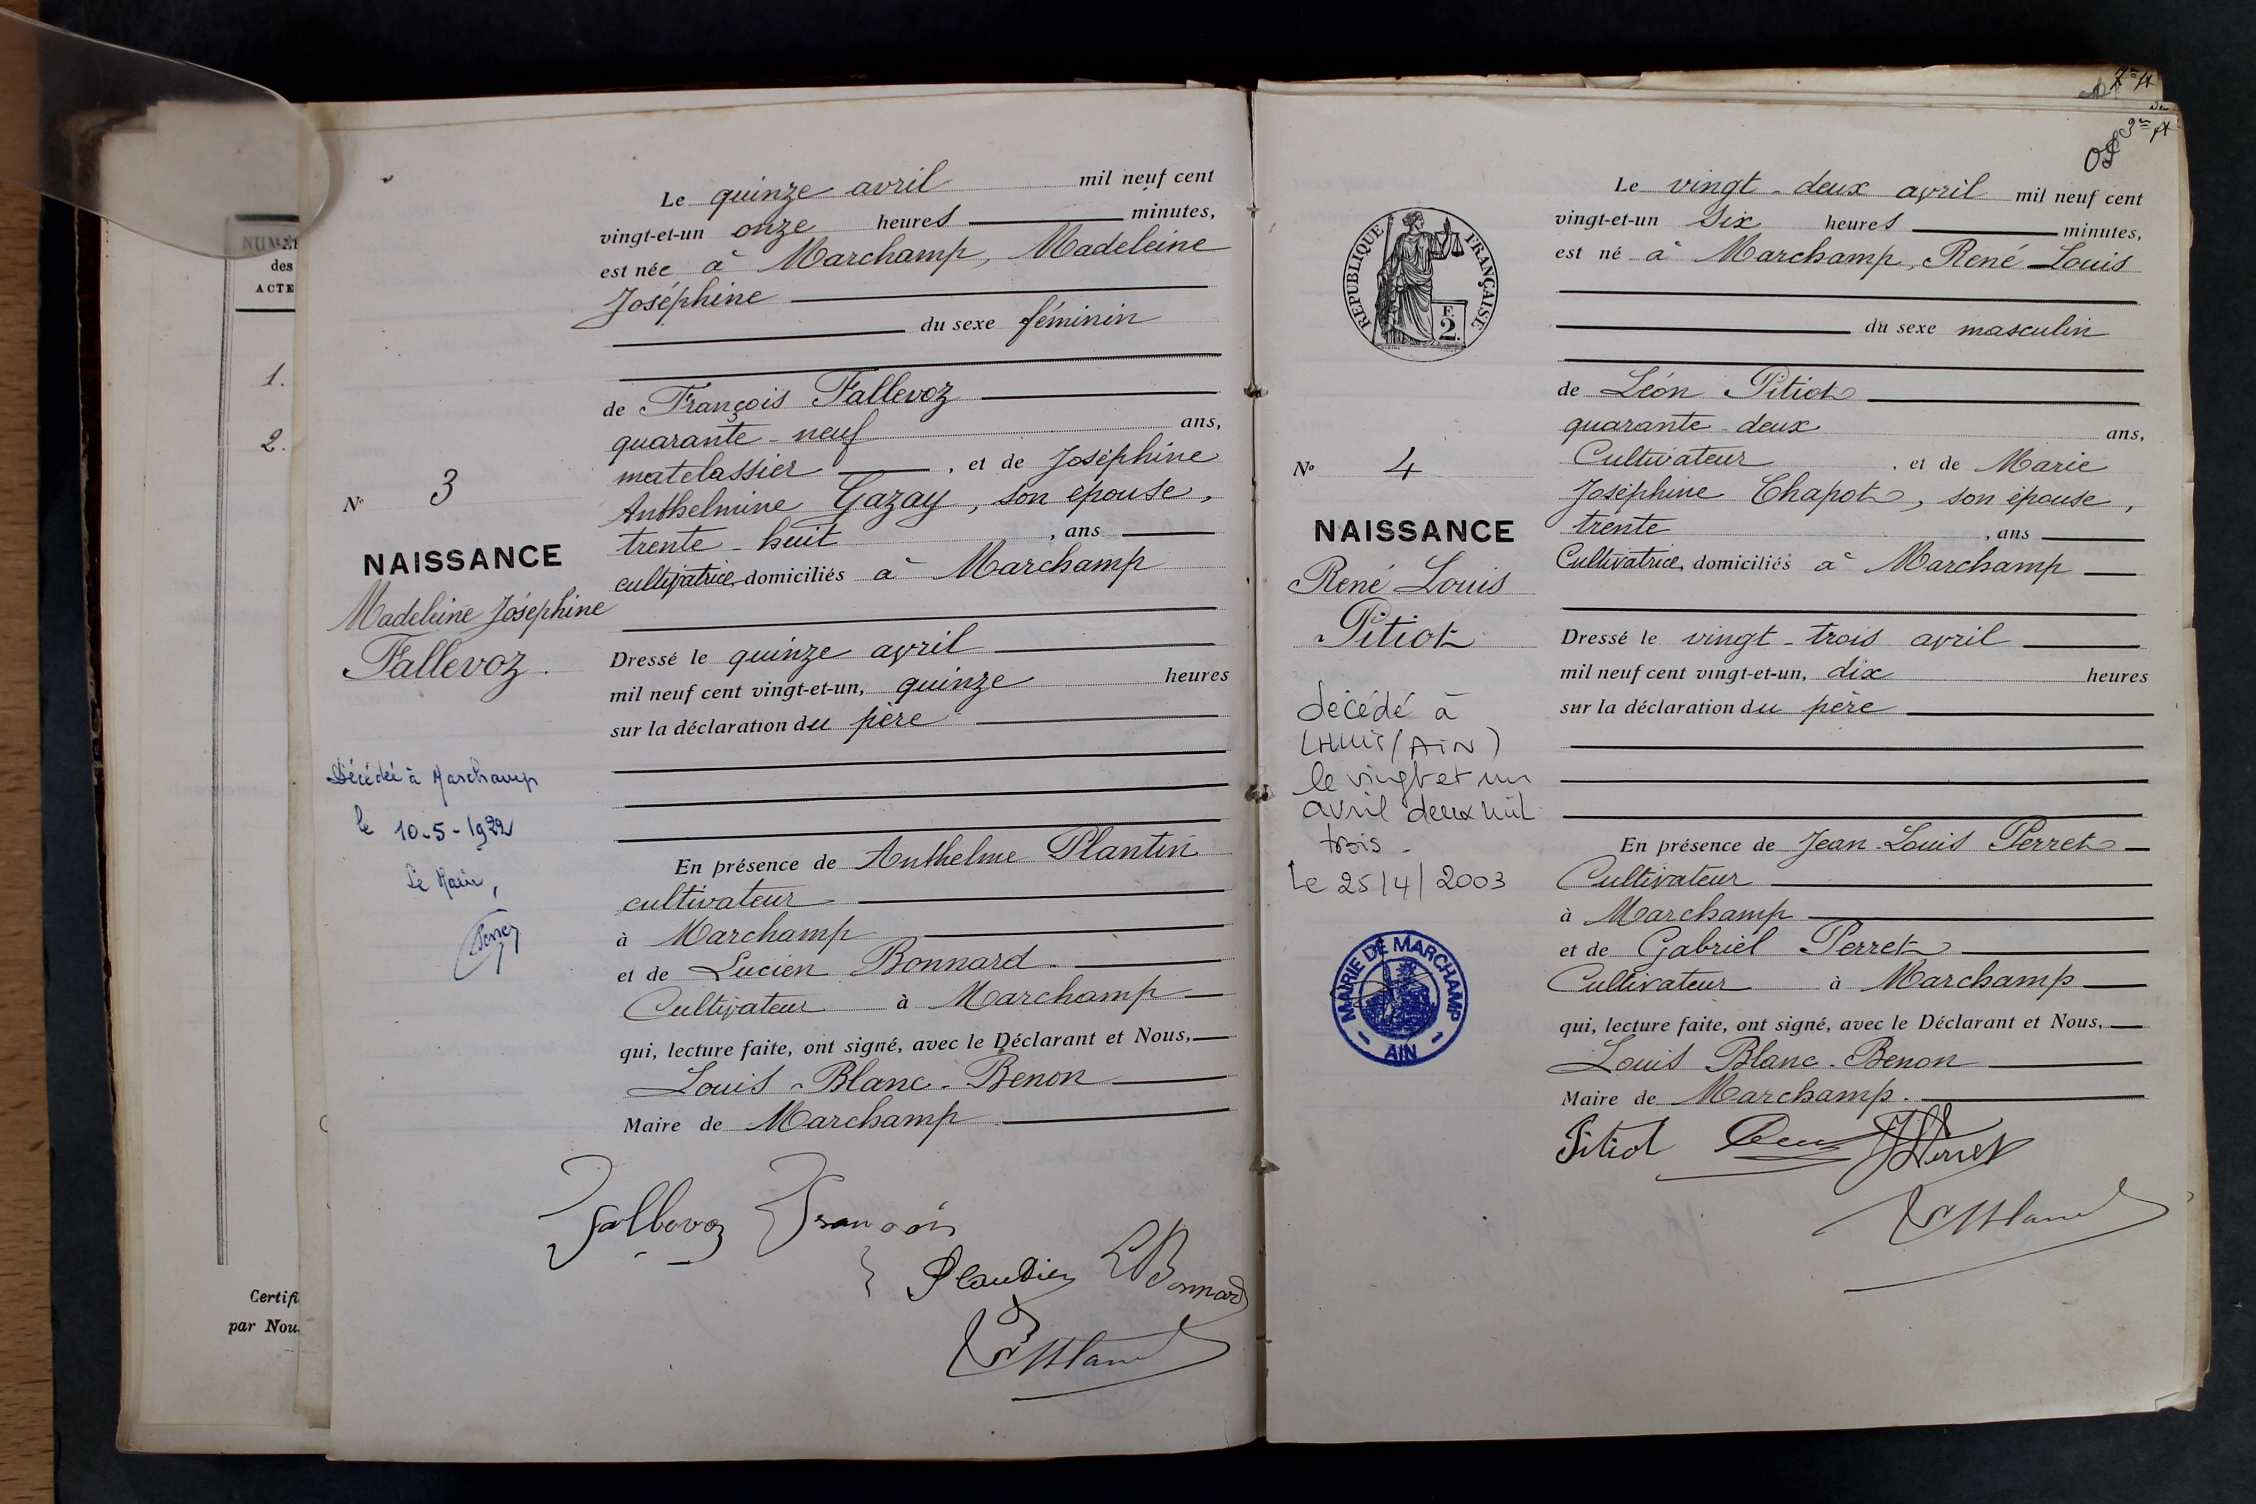 NUMÉ
des
ACTE
1.
2.
Certifi
par Nou
Le quinze avril mil neuf cent
vingt-et-un onze heures minutes,
est née à Marchamp, Madeleine
Joséphine
du sexe féminin
de François Fallevoz
quarante-neuf ans,
matelassier, et de Joséphine
Anthelmine Gazay, son épouse,
trente-huit, ans
cultivatrice, domiciliés à Marchamp
Dressé le quinze avril
mil neuf cent vingt-et-un, quinze heures
sur la déclaration du père
En présence de Anthelme Plantin
cultivateur
à Marchamp
et de Lucien Bonnard
Cultivateur à Marchamp
qui, lecture faite, ont signé, avec le Déclarant et Nous,
Louis Blanc-Benon
Maire de Marchamp
Nº 3
NAISSANCE
Madeleine Joséphine
Fallevoz.
Décédée à Marchamp
le 10-5-1922
Le Maire,
Fallevoz François
LBonnard
Le vingt-deux avril mil neuf cent
vingt-et-un six heures minutes,
est né à Marchamp, René Louis
du sexe masculin
de Léon Pitiot
quarante-deux ans,
Cultivateur, et de Marie
Joséphine Chapot, son épouse,
trente, ans
Cultivatrice, domiciliés à Marchamp
Dressé le vingt-trois avril
mil neuf cent vingt-et-un, dix heures
sur la déclaration du père
En présence de Jean-Louis Perret
Cultivateur
à Marchamp
et de Gabriel Perret
Cultivateur à Marchamp
qui, lecture faite, ont signé, avec le Déclarant et Nous,
Louis Blanc-Benon
Maire de Marchamp.
Pitiot JLPerret
RÉPUBLIQUE FRANÇAISE
F.
2.
Nº 4
NAISSANCE
René Louis
Pitiot
décédé à
LHUIS (AIN)
le vingt et un
avril deux mil
trois.
Le 25/4/2003
MAIRIE DE MARCHAMP
AIN